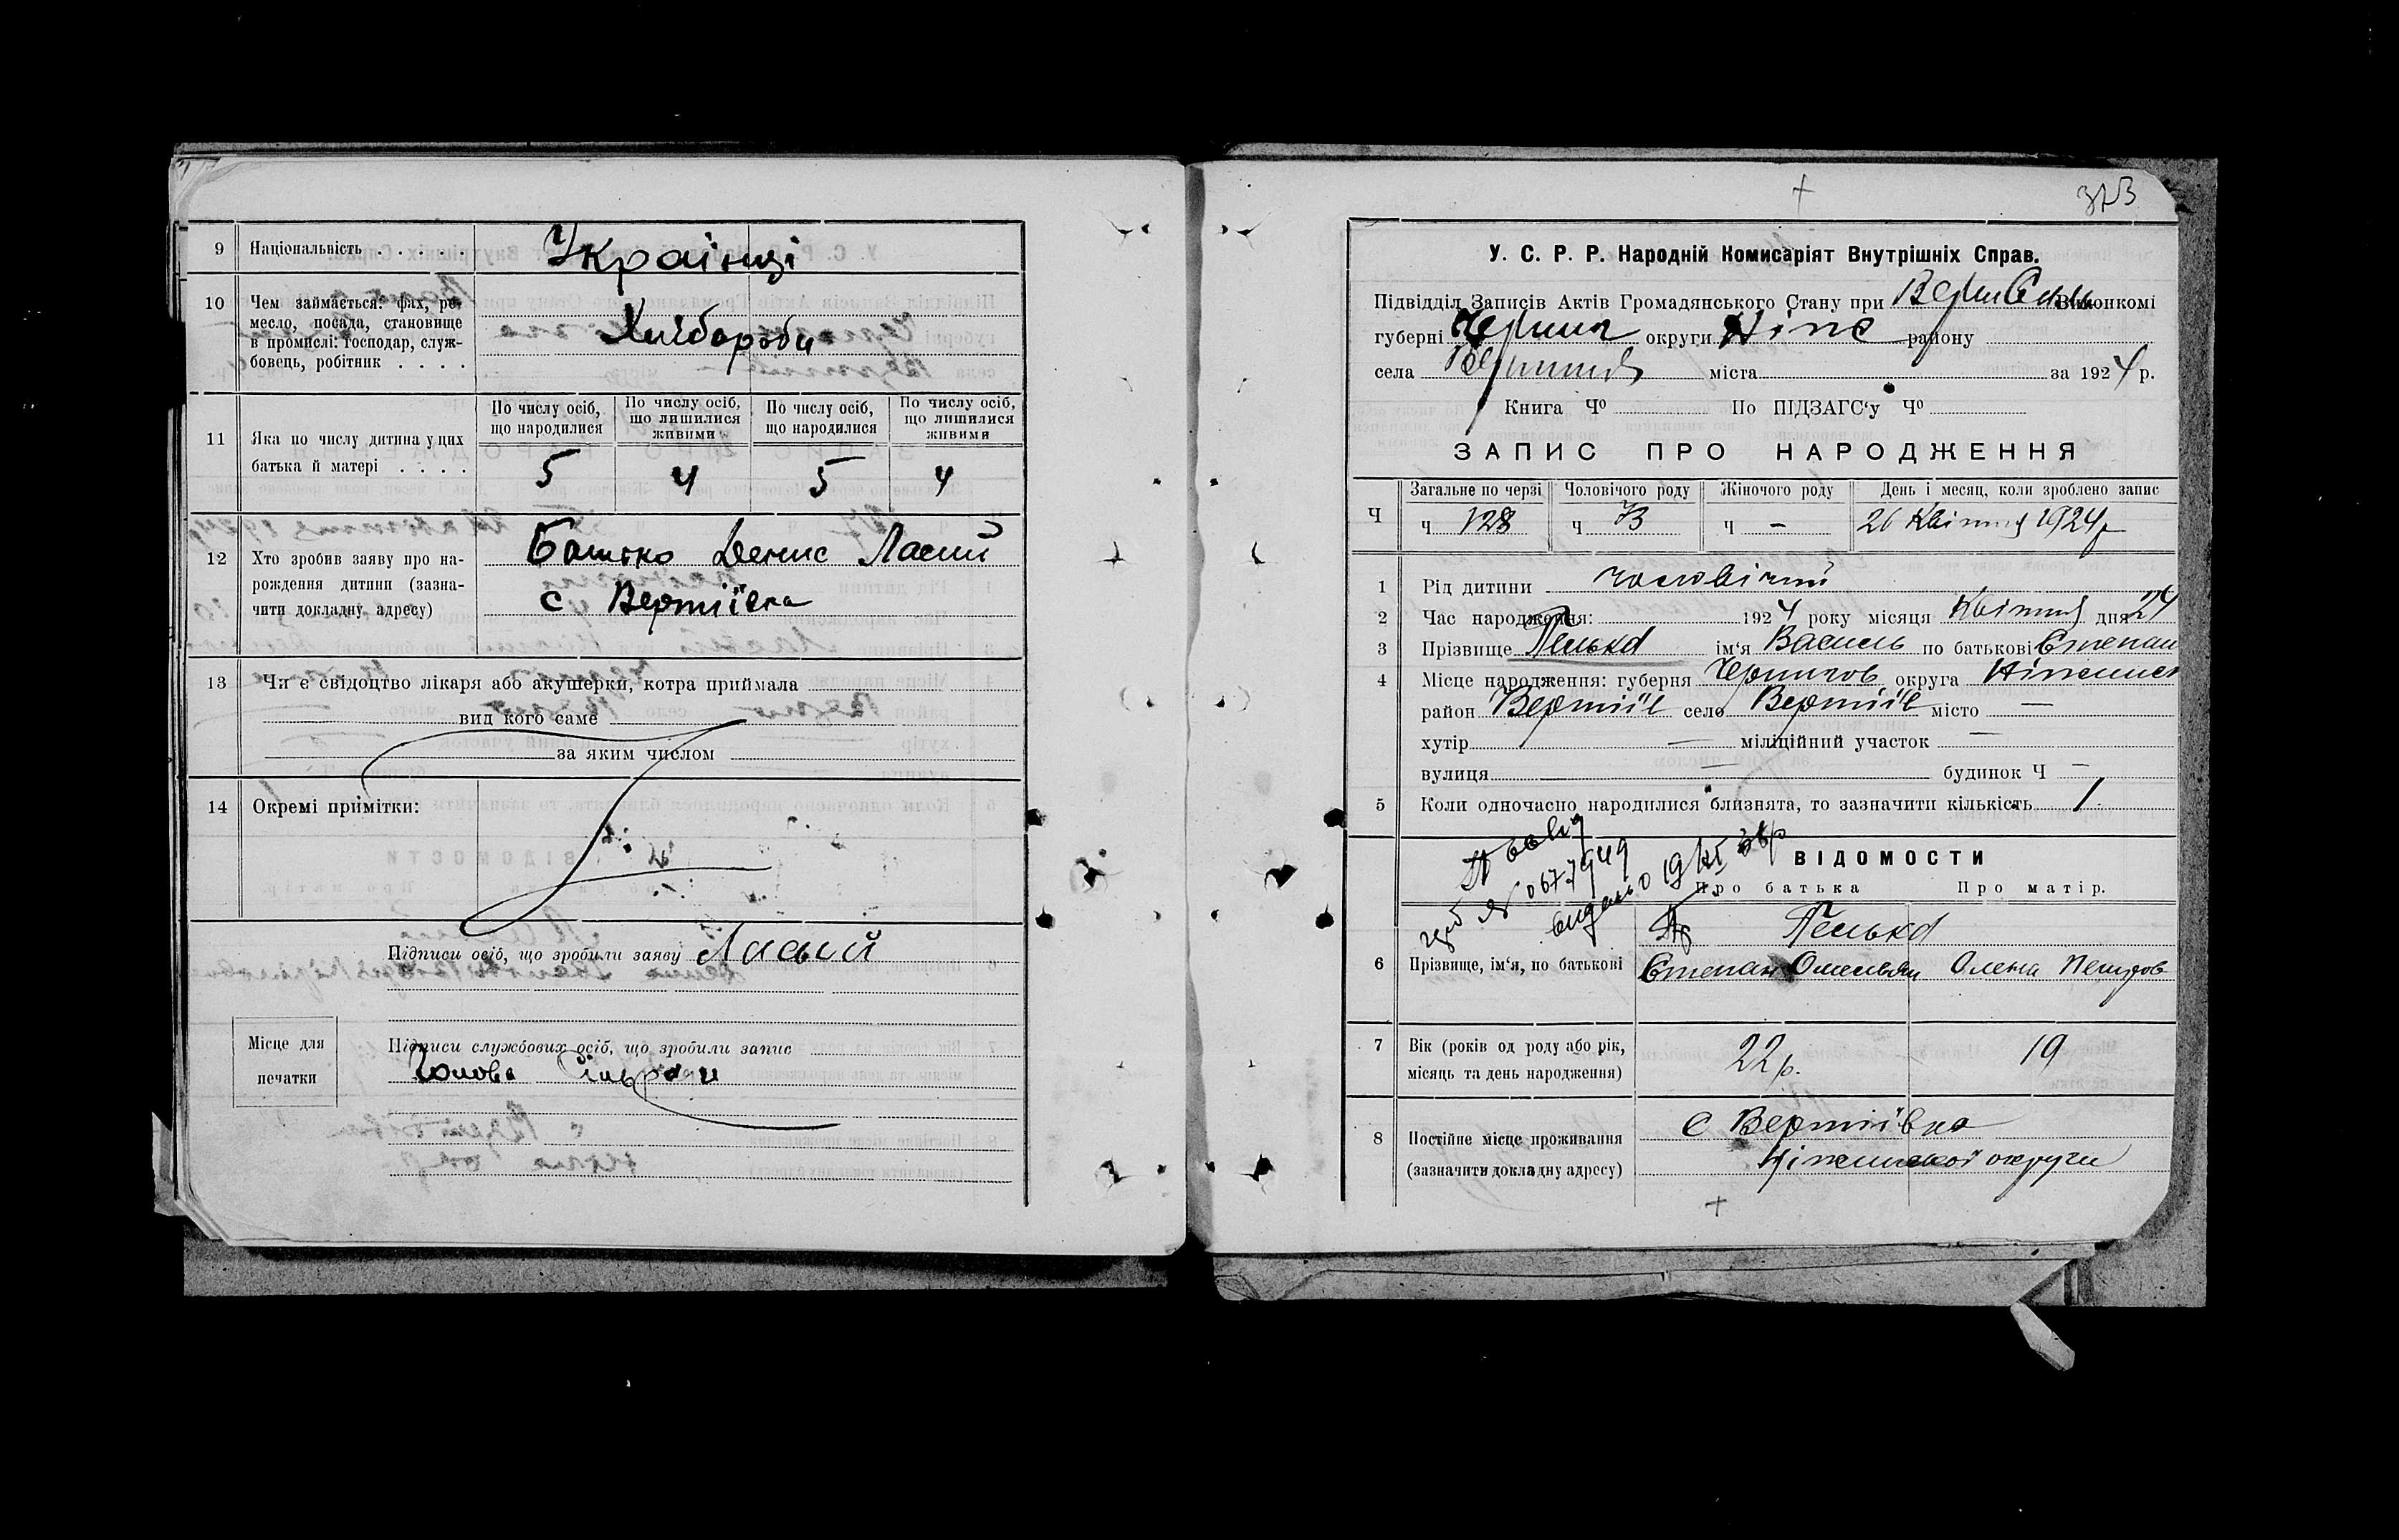 9 Національність . . . . . Українці
10 Чем займається: фах, ре-
месло, посада, становище
в промислі: господар, служ-
бовець, робітник . . . . Хлібороби
По числу осіб, що народилися
По числу осіб, що лишилися живими
По числу осіб, що народилися
По числу осіб, що лишилися живими
11 Яка по числу дитина у цих
батька й матері . . . . 5 4 5 4
12 Хто зробив заяву про на-
рождення дитини (зазна-
чити докладну адресу)
Батько Денис Ласий
с Вертіївка
13 Чи є свідоцтво лікаря або акушерки, котра приймала
вид кого саме
за яким числом
14 Окремі примітки:
Підписи осіб, що зробили заяву Ласый
Місце для
печатки
Підписи службових осіб, що зробили запис
Голова Сільради
373
У. С. Р. Р. Народній Комисаріят Внутрішніх Справ.
Підвідділ Записів Актів Громадянського Стану при Виконкомі
губерні Черниг округи Ніже району
села міста за 1924 р.
Книга Ч⁰ По ПІДЗАГС‘у Ч⁰
ЗАПИС ПРО НАРОДЖЕННЯ
Ч
Загальне по черзі Чоловічого роду Жіночого роду День і месяц, коли зроблено запис
ч 128 ч 73 ч — 26 Квітня 1924 р
1 Рід дитини чоловічий
2 Час народження: 1924 року місяця Квітня дня 24
3 Прізвище Пелька ім‘я Василь по батькові Степан
4 Місце народження: губерня Чернигов округа Ніженск
район Вертіїв село Вертіїв місто —
хутір — міліційний участок —
вулиця — будинок Ч —
5 Коли одночасно народилися близнята, то зазначити кількість 1
№ 0677949
видано
ВІДОМОСТИ
Про батька Про матір.
Пелька
6 Прізвище, ім‘я, по батькові Степан Омельян Олена Петров
7 Вік (років од роду або рік,
місяць та день народження) 22 р. 19
8 Постійне місце проживання
(зазначити докладну адресу)
с Вертіївка
Ніженської округи